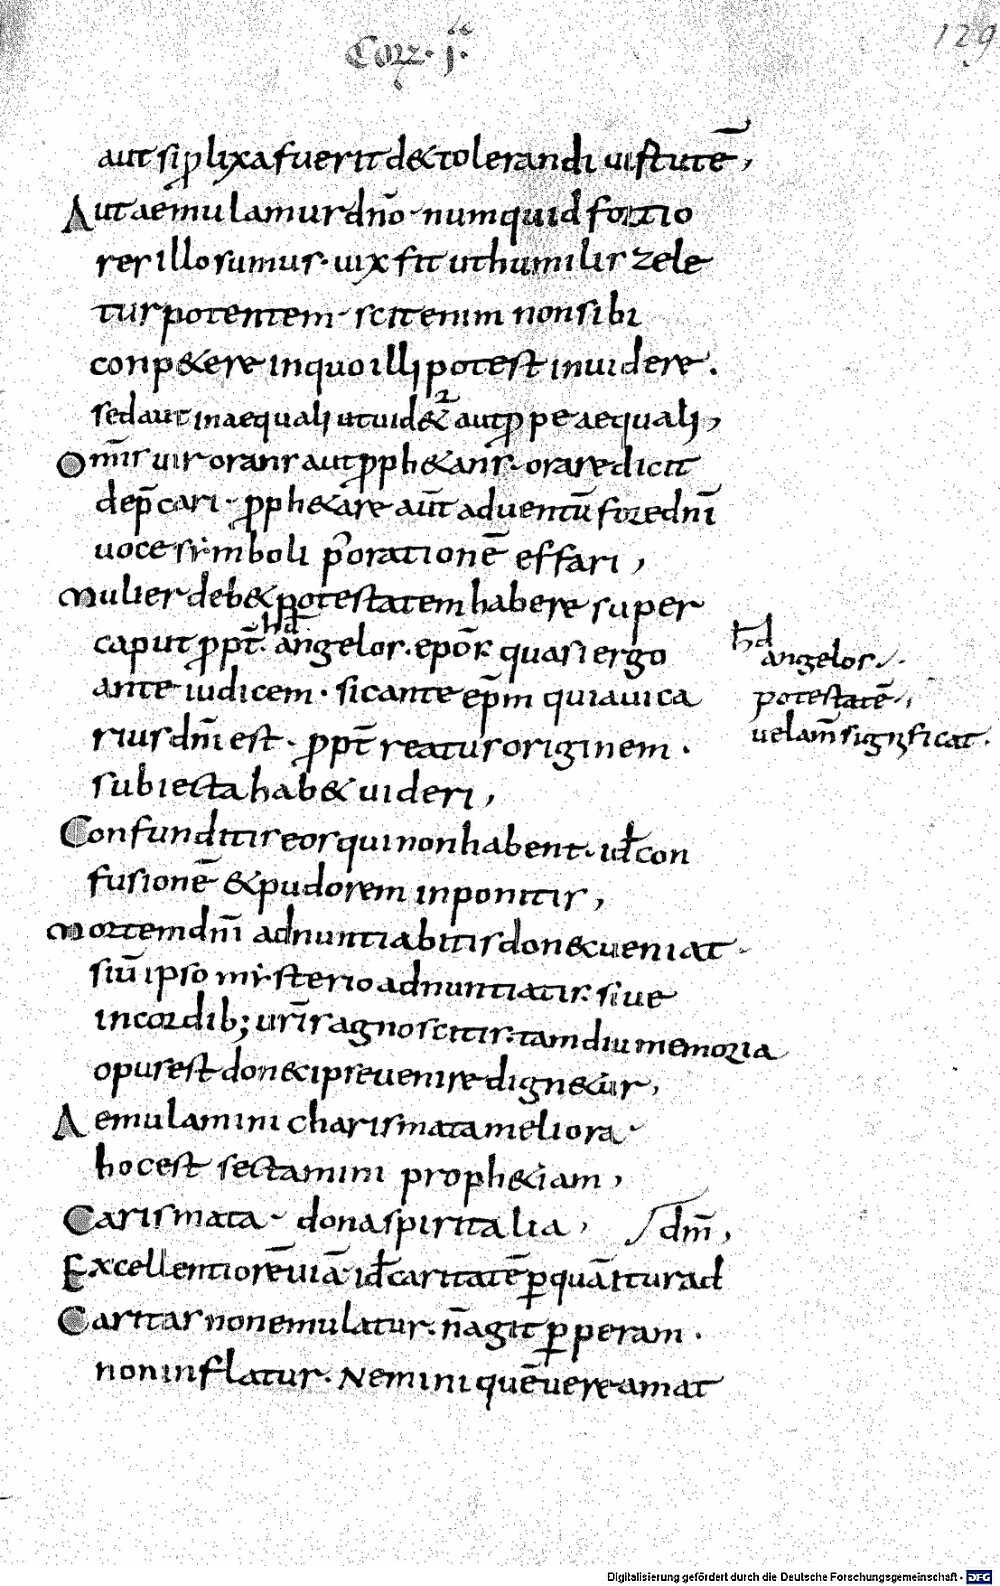 Corr · I ·
129
aut si plixa fuerit det tolerandi uirtutē,
Aut aemulamur dn̄o · numquid fortio
res illo sumus · uix fit ut humilis zele
tur potentem · scit enim non sibi
conp&ere in quo illi potest inuidere.
sed aut inaequali ut uid&ur aut ppe aequali,
Om̄is uir orans aut pph&ans · orare dicit
dep̄cari · pph&are aūt aduentū fore dn̄i
uoce simboli p orationē effari,
Mulier deb& potestatem habere super
caput ppt̄ · hđ angelos · epōs quasi ergo
ante iudicem · sic ante ep̄m quia uica
rius dn̄i est · ppt̄ reatus originem ·
subiecta hab& uideri,
hđ
angelos ·
potestatē ·
uelam̄ significat ·
Confunditis eos qui non habent · id con
fusionē & pudorem inponitis,
Mortem dn̄i adnuntiabitis donec ueniat ·
siū ipso misterio adnuntiatis · siue
in cordib; ur̄is agnoscitis · tam diu memoria
opus est donec ipse uenire dign&ur,
Aemulamini charismata meliora ·
hoc est sectamini proph&iam,
Carismata · dona spiritalia, dn̄m,
Excellentiorē uiā · id caritatē p quā itur ad
Caritas non emulatur · n̄ agit pperam ·
non inflatur · Nemini quē uere amat
Digitalisierung gefördert durch die Deutsche Forschungsgemeinschaft - DFG